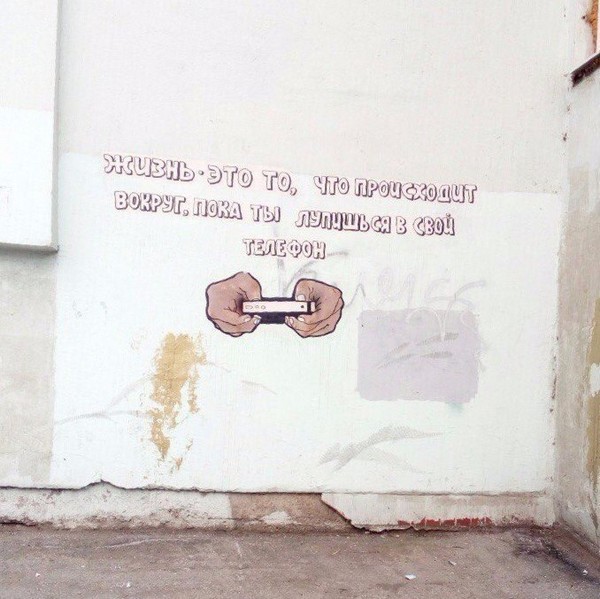 ЖИЗНЬ · ЭТО ТО, ЧТО ПРОИСХОДИТ
ВОКРУГ, ПОКА ТЫ ЛУПИШЬСЯ В СВОЙ
ТЕЛЕФОН